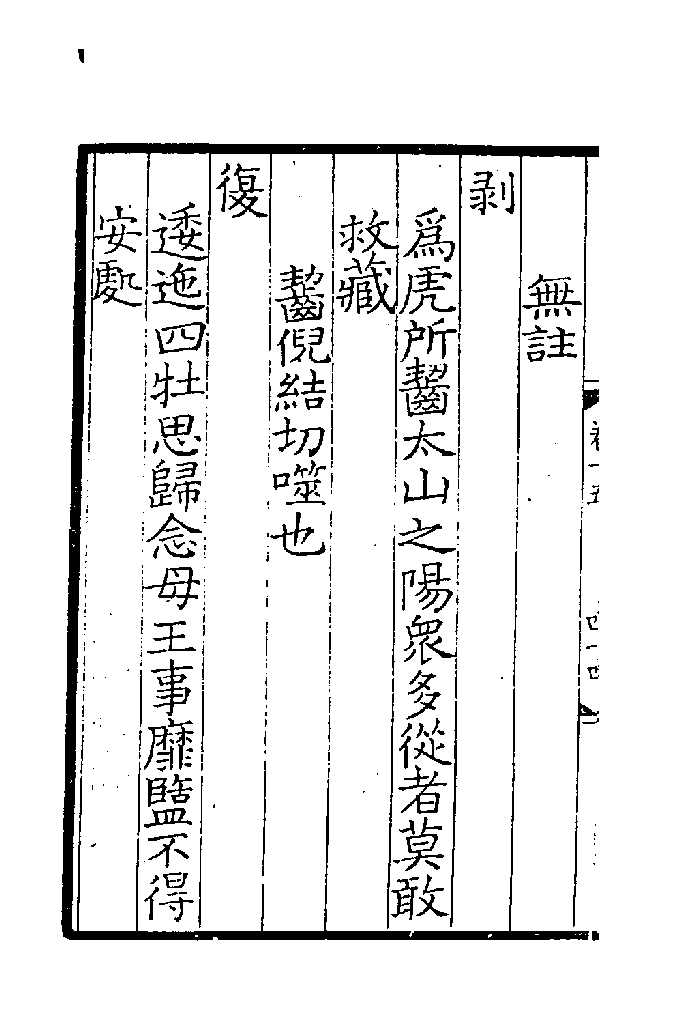 無註
剥
爲虎所齧太山之陽衆多從者莫敢
救藏
齧倪結切噬也
復
逶迤四牡思歸念母王事靡盬不得
安䖏